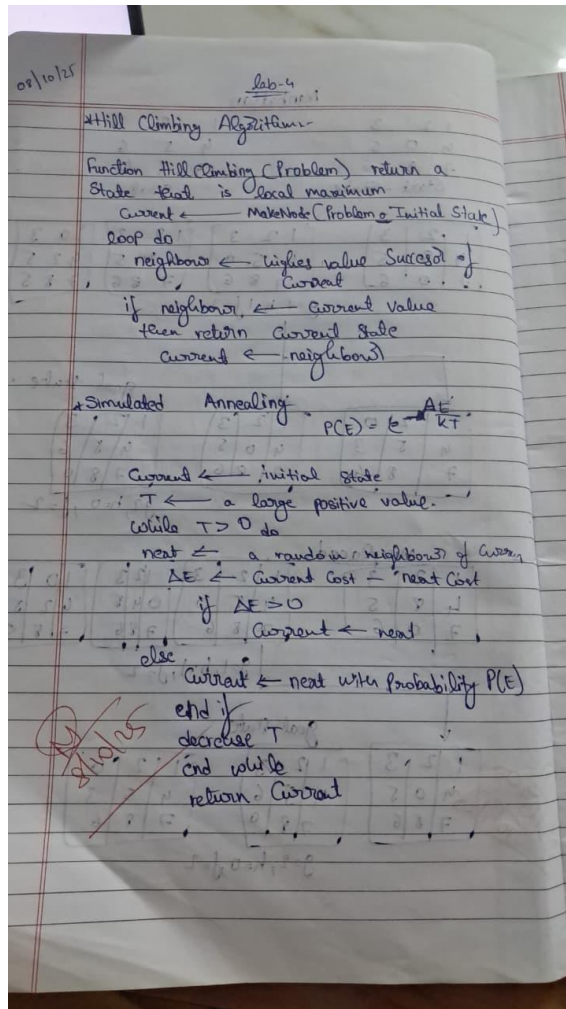 08/10/25
lab-4
*Hill Climbing Algorithm:-
Function Hill Climbing (Problem) return a
State that is local maximum
Current ← MakeNode (Problem Initial State)
loop do
neighbour ← highes value Succesor of
Current
if neighbour ← Current value
then return Current State
Current ← neighbour
*Simulated Annealing
P(E) = e^-ΔE/KT
Current ← initial State
T ← a large positive value.
while T > 0 do
next ← a random neighbour of Curren
ΔE ← Current Cost - next Cost
if ΔE > 0
Current ← next
else
Current ← next with Probability P(E)
end if
decrease T
end while
return Current
8/10/25